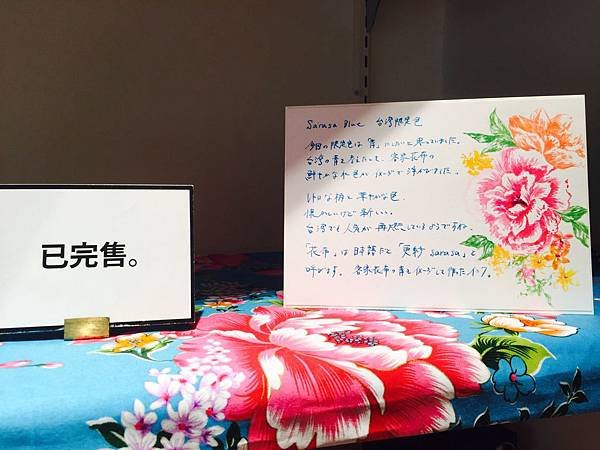 已完售。
Sarasa Blue 台湾限定色
今回の限定色は「青」にしたいと思っていました。
台湾の青を考えたとき、客家花布の
鮮やかな水色がイメージで浮かびました。
レトロな柄と華やかな色。
懐かしいけど新しい。
台湾でも人気が再燃しているようですね。
「花布」は日本語だと「更紗 sarasa」と
呼びます。客家花布の青をイメージして作ったインク。